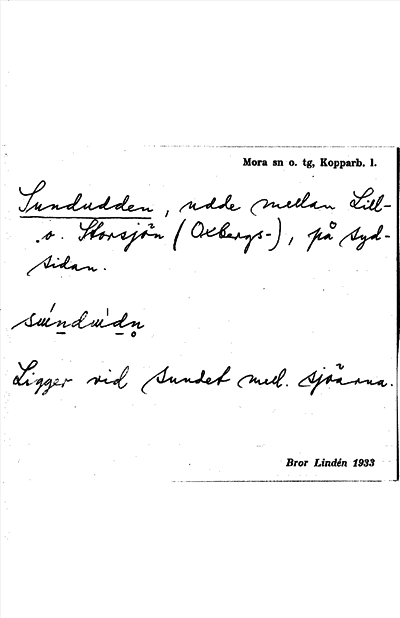 Mora sn o. tg, Kopparb. l.
Sundudden, udde mellan Lill-
o. Storsjön (Oxbergs-), på syd-
sidan.
Ligger vid sundet mell. sjöarna.
Bror Lindén 1933